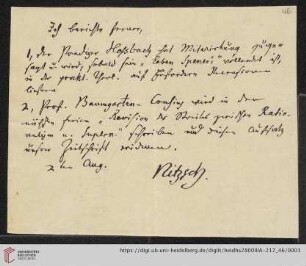 46
Ich berichte ferner,
1, der Prediger Hoßbach hat Mitwirkung zuge-
sagt u. wird, sobald sein „Leben Speners" vollendet ist,
in der prakt. Theol. auf Erfordern Recensionen
liefern
2, Prof. Baumgarten-Crusius wird in den
nächsten Ferien e. Revision des Streites zwischen Ratio-
nalism u. Supern. schreiben und diesen Aufsatz
unsrer Zeitschrift widmen.
2ten Aug.
Nitzsch.
UNIVERSITÄTS-
BIBLIOTHEK
HEIDELBERG
https://digi.ub.uni-heidelberg.de/diglit/heidhs2660IIIA-212_46/0001